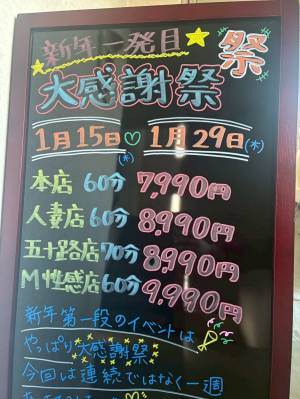 新年一発目
祭
大感謝祭
1月15日(木)♡1月29日(木)
本店 60分 7,990円
人妻店 60分 8,990円
五十路店 70分 8,990円
M性感店 60分 9,990円
新年第一段のイベントは
やっぱり大感謝祭
今回は連続ではなく一週